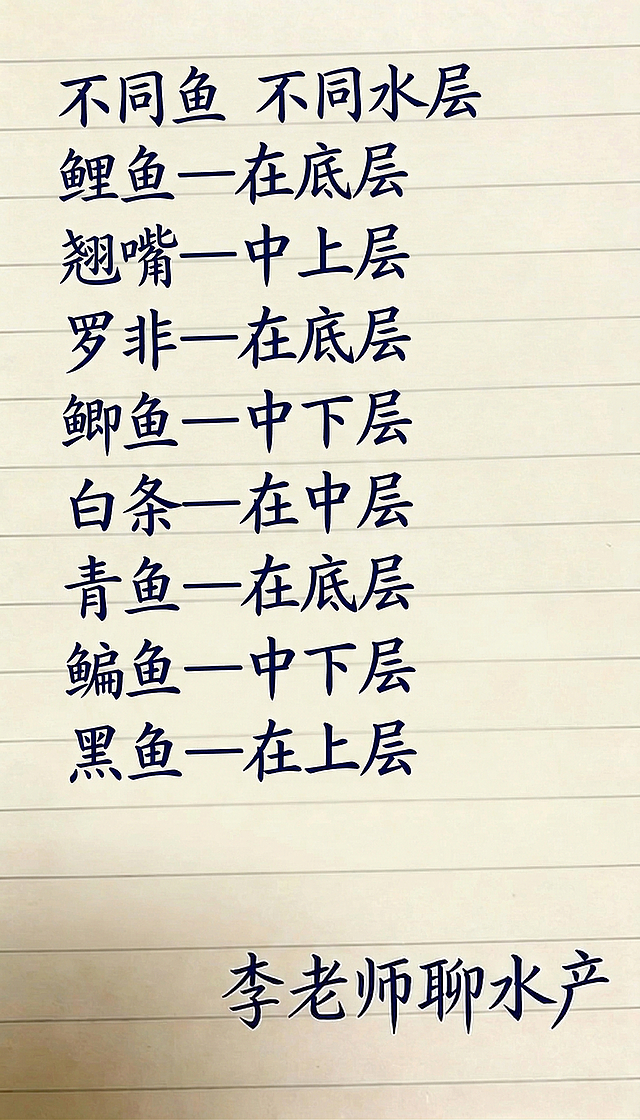 不同鱼 不同水层
鲤鱼—在底层
翘嘴—中上层
罗非—在底层
鲫鱼—中下层
白条—在中层
青鱼—在底层
鳊鱼—中下层
黑鱼—在上层
李老师聊水产